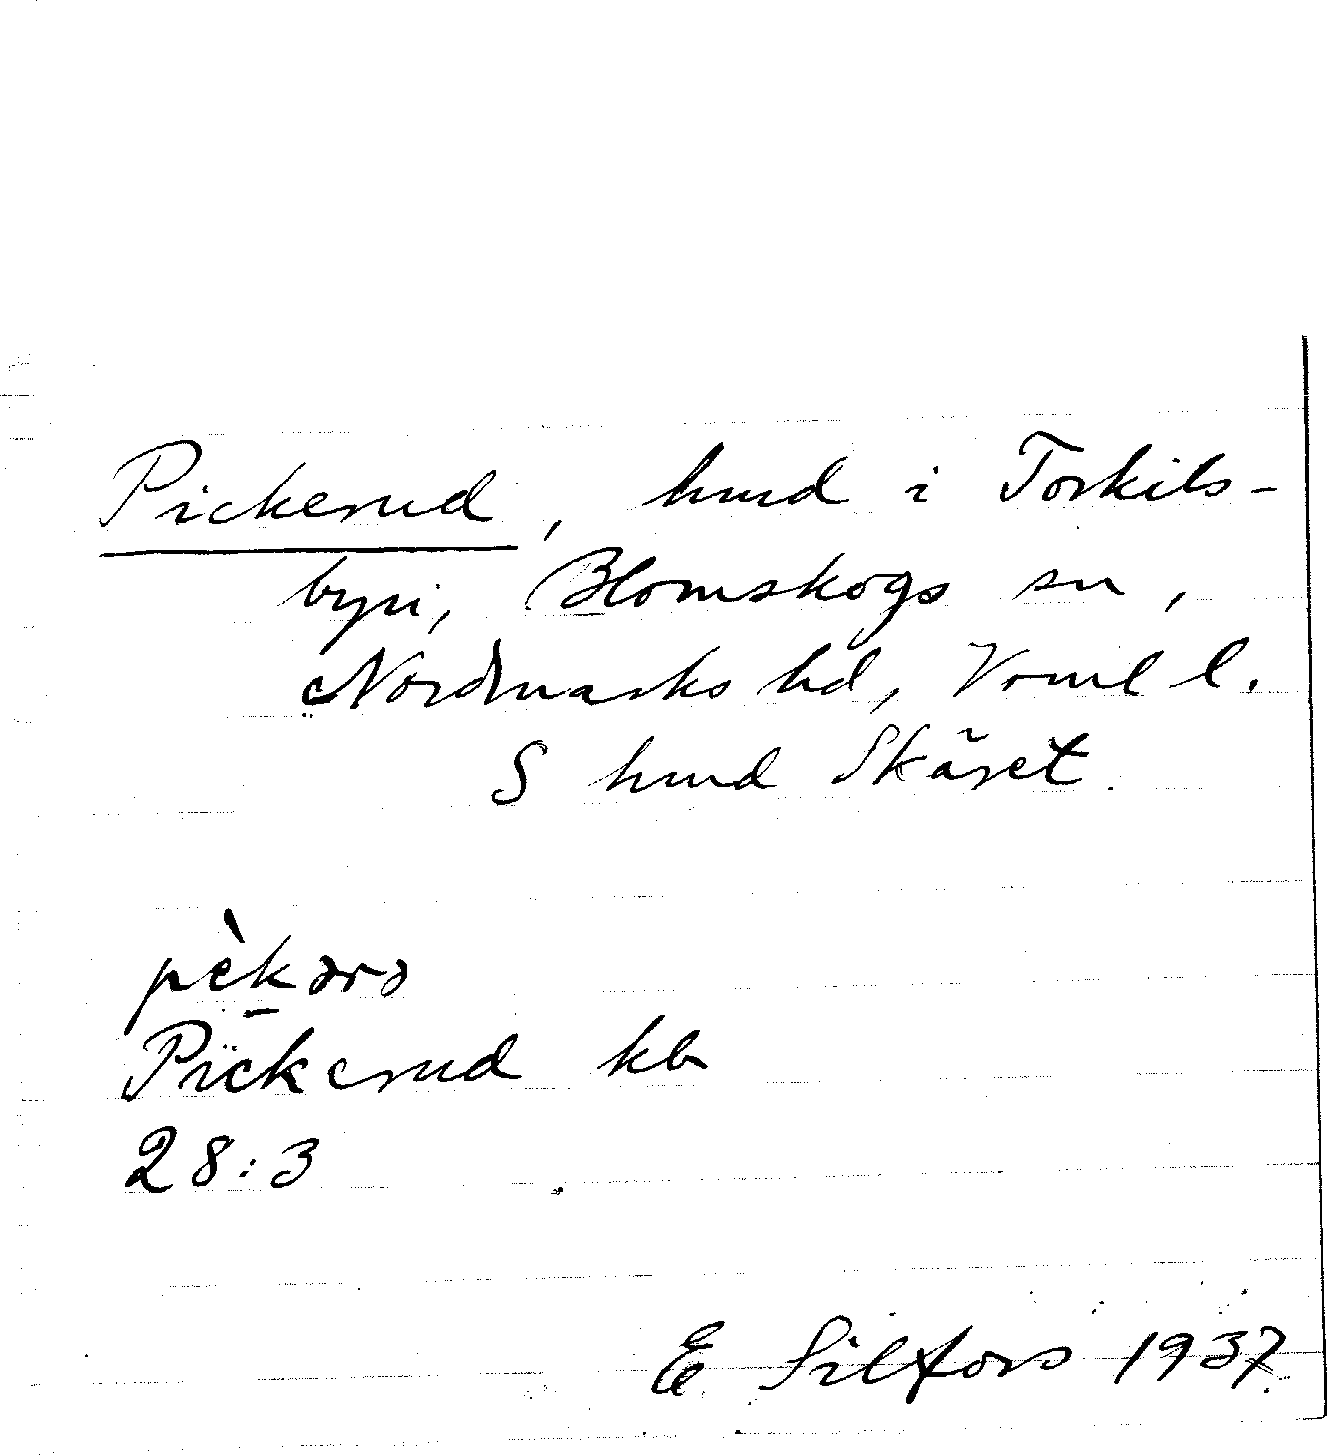 Pickerud, hmd i Torkils-
byn, Blomskogs sn,
Nordmarks hd, Vrml l.
S hmd Skäret.
pèkərə
Pickerud kb
28:3
E Silfors 1937